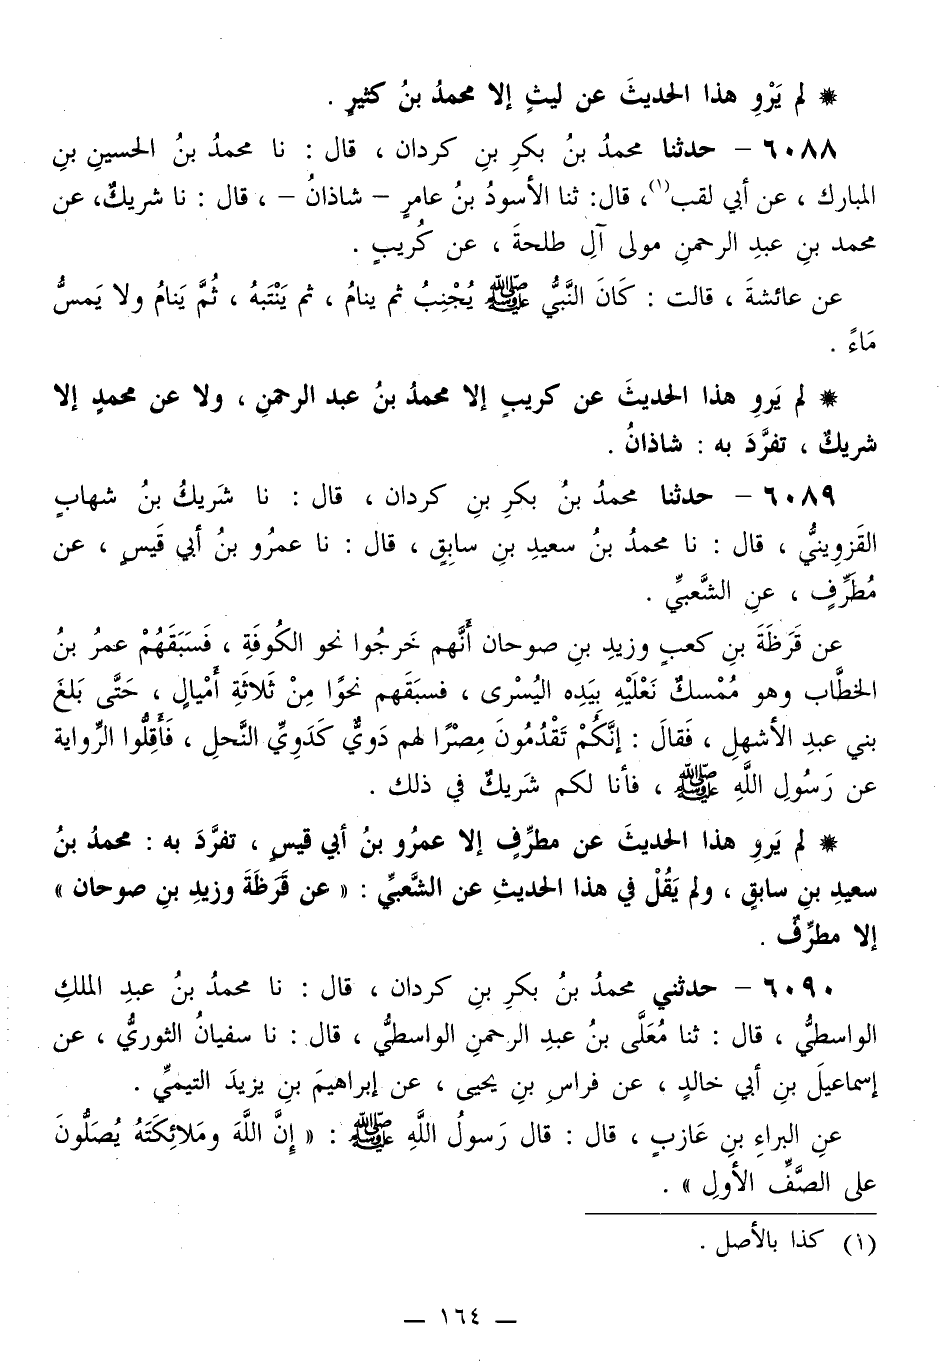 * لم يَرْوِ هذا الحديثَ عن ليثٍ إلا محمدُ بنُ كثيرٍ .
٦٠٨٨ – حدثنا محمدُ بنُ بكرِ بنِ كردان ، قال : نا محمدُ بنُ الحسينِ بنِ
المبارك ، عن أبي لقب(١)، قال: ثنا الأسودُ بنُ عامرٍ – شاذانُ – ، قال : نا شريكٌ، عن
محمد بنِ عبدِ الرحمنِ مولى آلِ طلحةَ ، عن كُريبٍ .
عن عائشةَ ، قالت : كَانَ النَّبيُّ ﷺ يُجْنِبُ ثم ينامُ ، ثم يَنْتَبهُ ، ثُمَّ يَنامُ ولا يَمسُّ
مَاءً .
* لم يَروِ هذا الحديثَ عن كريبٍ إلا محمدُ بنُ عبد الرحمنِ ، ولا عن محمدٍ إلا
شريكٌ ، تفرَّدَ به : شاذانُ .
٦٠٨٩ – حدثنا محمدُ بنُ بكرِ بنِ كردان ، قال : نا شَريكُ بنُ شهابٍ
القَزوِينيُّ ، قال : نا محمدُ بنُ سعيدِ بنِ سابِقٍ ، قال : نا عمرُو بنُ أبي قَيسٍ ، عن
مُطَرِّفٍ ، عنِ الشَّعبيِّ .
عن قَرظَةَ بنِ كعبٍ وزيدِ بنِ صوحان أنَّهم خَرجُوا نحو الكُوفَةِ ، فَسَبَقَهُمْ عمرُ بنُ
الخطَّاب وهو مُمْسكٌ نَعْلَيْهِ بيَدِه اليُسْرى ، فسبَقَهم نحوًا مِنْ ثَلاثَةِ أَمْيالٍ ، حَتَّى بَلغَ
بني عبدِ الأشهلِ ، فَقالَ : إنَّكُمْ تَقْدُمُونَ مِصْرًا لهم دَويٌّ كَدَوِيِّ النَّحلِ ، فَأَقِلُّوا الرِّواية
عن رَسُولِ اللَّهِ ﷺ ، فأنا لكم شَريكٌ في ذلك .
* لم يَروِ هذا الحديثَ عن مطرِّفٍ إلا عمرُو بنُ أبي قيسٍ ، تفرَّدَ به : محمدُ بنُ
سعيدِ بنِ سابقٍ ، ولم يَقُلْ في هذا الحديثِ عن الشَّعبيِّ : « عن قَرظَةَ وزيدِ بنِ صوحان »
إلا مطرِّفٌ .
٦٠٩٠ – حدثني محمدُ بنُ بكرِ بنِ كردان ، قال : نا محمدُ بنُ عبدِ الملكِ
الواسطيُّ ، قال : ثنا مُعَلَّى بنُ عبدِ الرحمنِ الواسطيُّ ، قال : نا سفيانُ الثوريُّ ، عن
إسماعيلَ بنِ أبي خالدٍ ، عن فراسِ بنِ يحيى ، عن إبراهيمَ بنِ يزيدَ التيميِّ .
عنِ البراءِ بنِ عَازبٍ ، قال : قال رَسولُ اللَّهِ ﷺ : « إنَّ اللَّهَ ومَلائِكَتَهُ يُصَلُّونَ
على الصَّفِّ الأولِ » .
(١) كذا بالأصل .
— ١٦٤ —